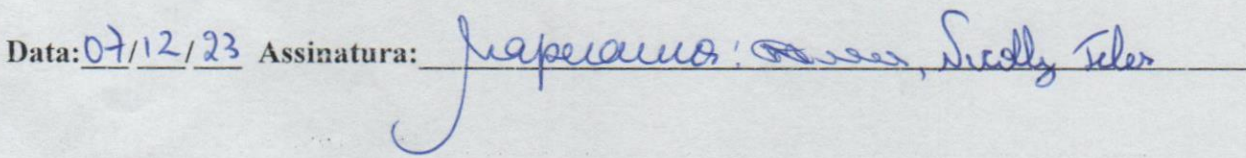 Data: 07/12/23 Assinatura: Nicolly Teles